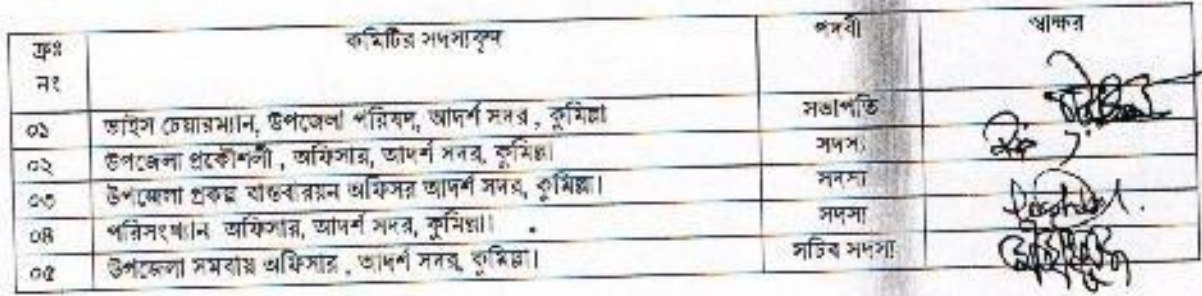 ক্রঃ নং কমিটির সদস্যবৃন্দ পদবী স্বাক্ষর
০১ ভাইস চেয়ারম্যান, উপজেলা পরিষদ, আদর্শ সদর , কুমিল্লা সভাপতি
০২ উপজেলা প্রকৌশলী , অফিসার, আদর্শ সদর, কুমিল্লা। সদস্য
০৩ উপজেলা প্রকল্প বাস্তবারয়ন অফিসর আদর্শ সদর, কুমিল্লা। সদস্য
০৪ পরিসংখ্যান অফিসার, আদর্শ সদর, কুমিল্লা। সদস্য
০৫ উপজেলা সমবায় অফিসার , আদর্শ সদর, কুমিল্লা। সচিব সদস্য